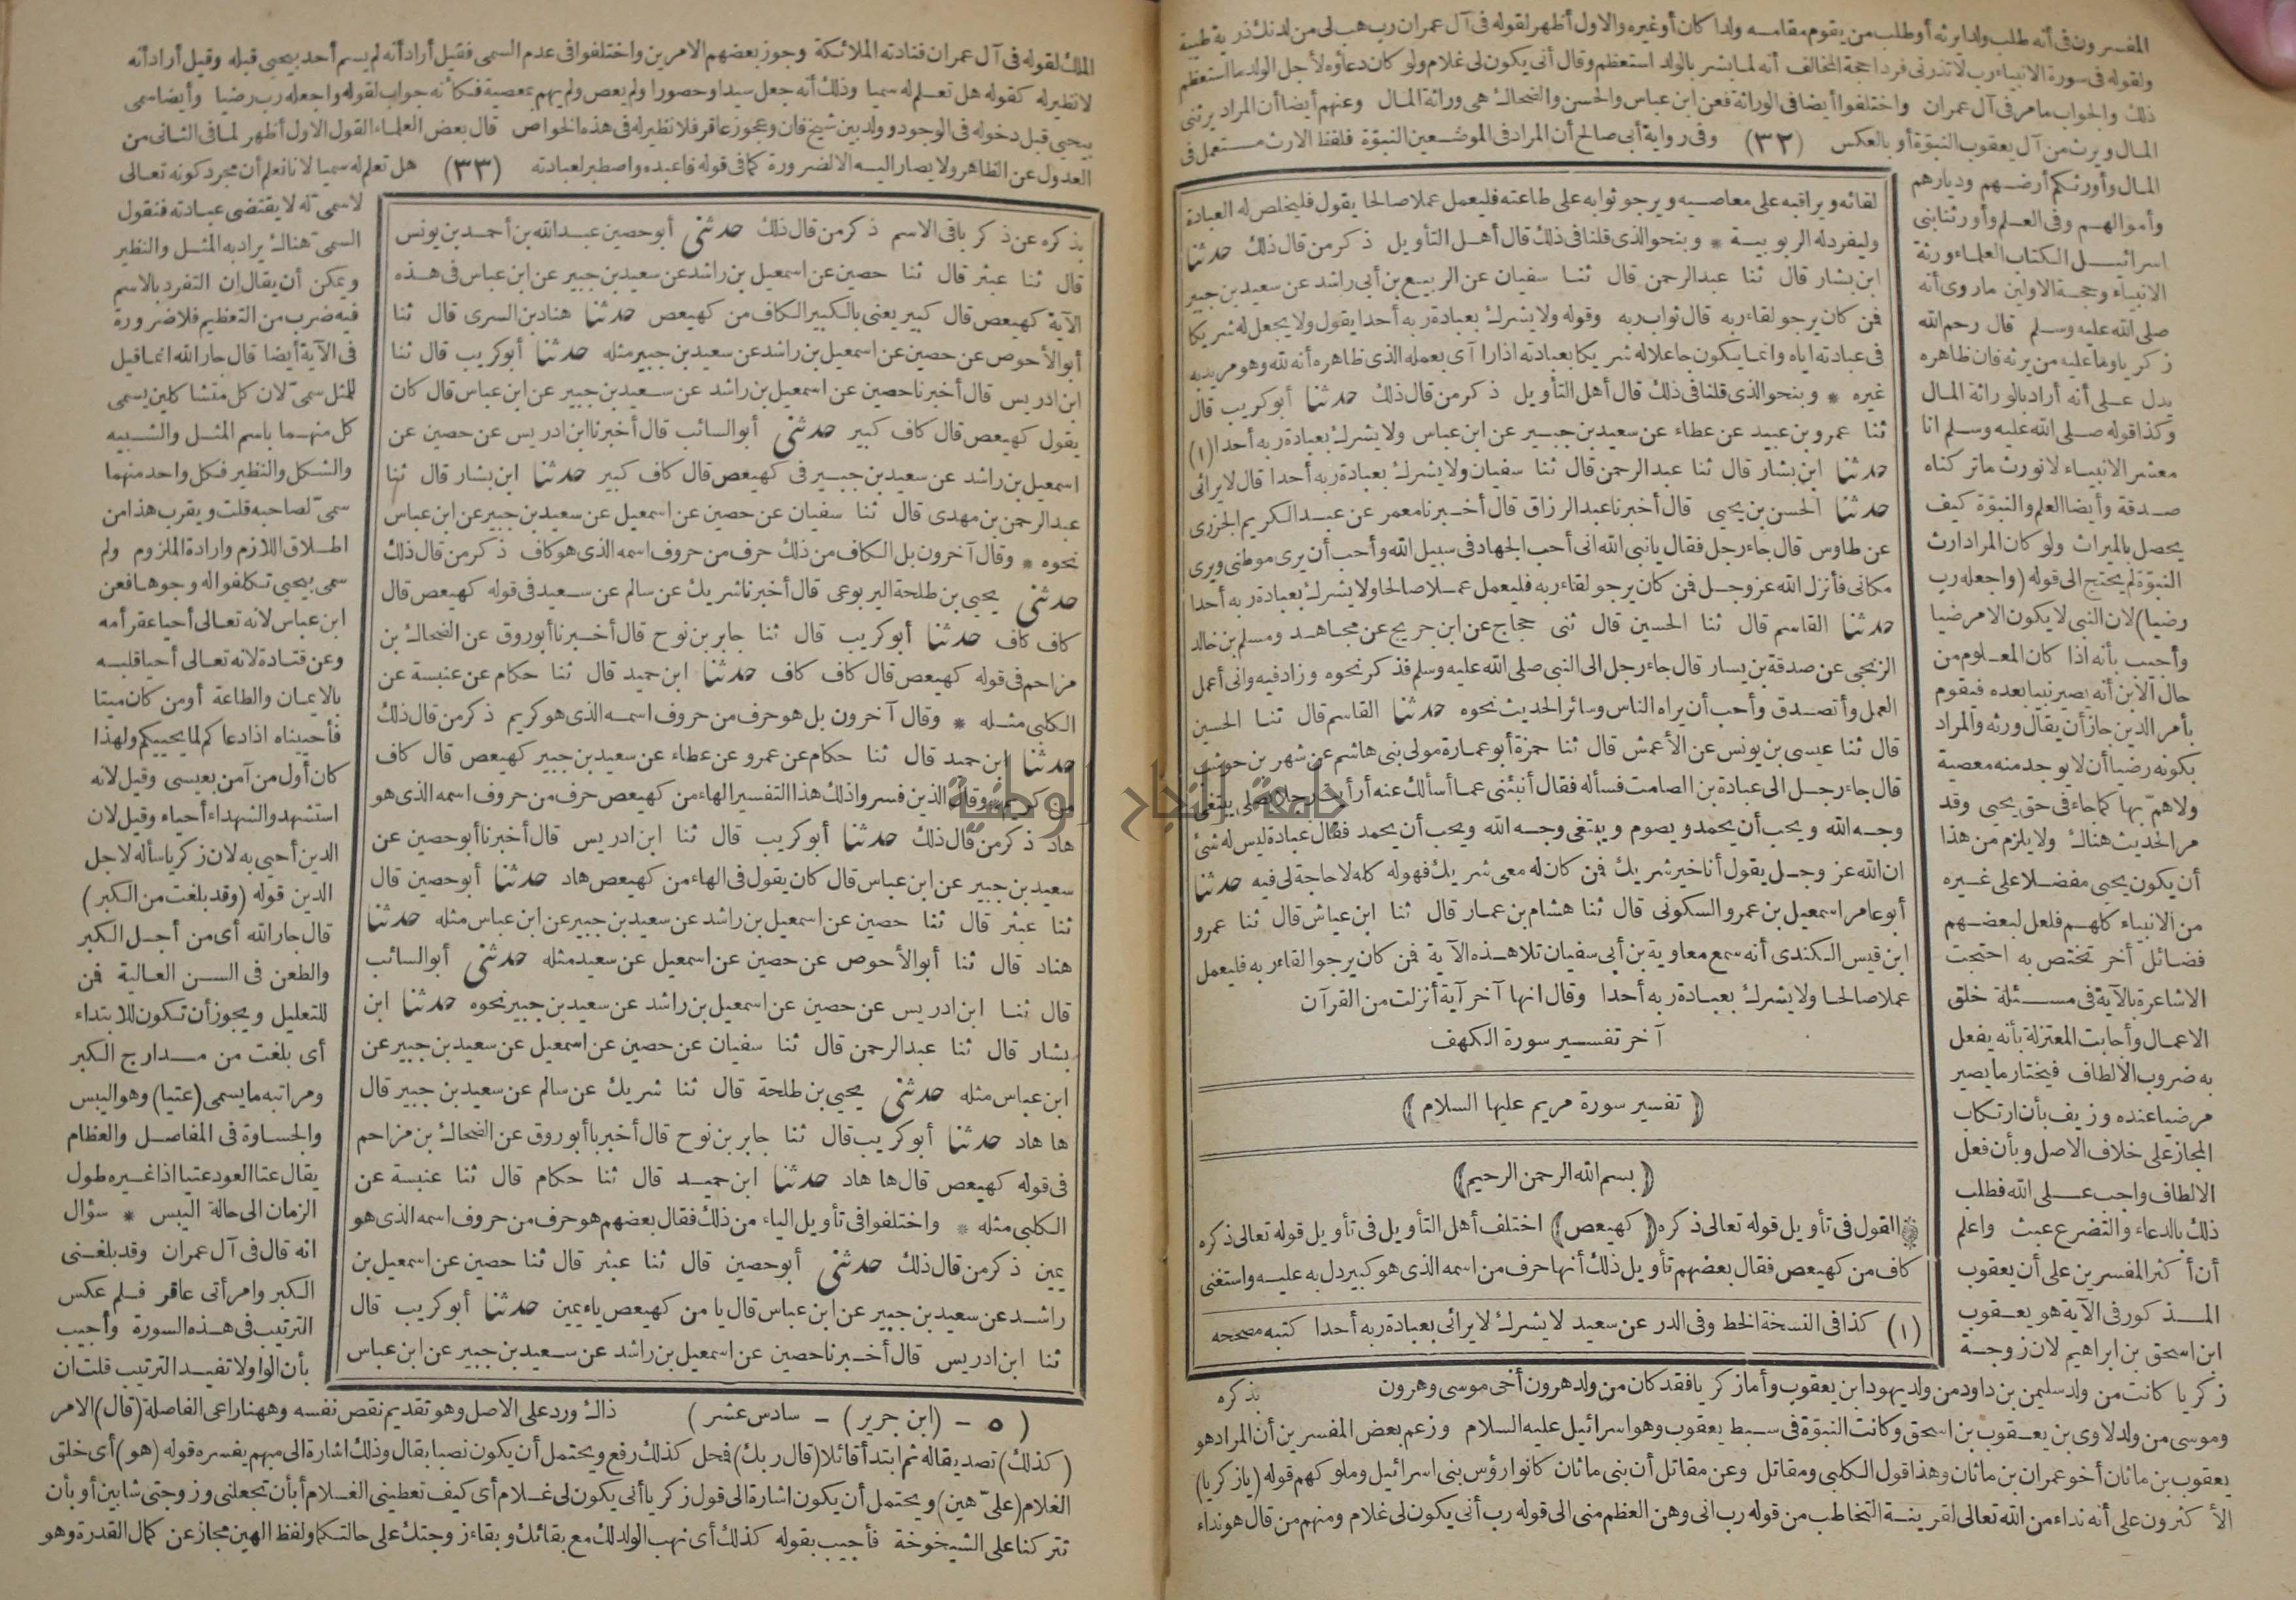 المفسرون في أنه طلب ولدا يرثه أو طلب من يقوم مقامه ولدا كان أو غيره والاول أظهر لقوله في آل عمران رب هب لي من لدنك ذرية طيبة
ولقوله في سورة الانبياء رب لا تذرني فردا حجة المخالف أنه لما بشر بالولد استعظم وقال أنى يكون لي غلام ولو كان دعاؤه لأجل الولد ما استعظم
ذلك والجواب ما مر في آل عمران واختلفوا أيضا في الوراثة فعن ابن عباس والحسن والضحاك هي وراثة المال وعنهم أيضا أن المراد يرثني
المال ويرث من آل يعقوب النبوّة أو بالعكس (٣٢) وفي رواية أبي صالح أن المراد في الموضعين النبوّة فلفظ الارث مستعمل في
المال وأورثكم أرضهم وديارهم
وأموالهم وفي العلم وأورثنا بني
اسرائيل الكتاب العلماء ورثة
الانبياء وحجة الاولين ما روى أنه
صلى الله عليه وسلم قال رحم الله
زكريا وما عليه من يرثه فان ظاهره
يدل على أنه أراد بالوراثة المال
وكذا قوله صلى الله عليه وسلم انا
معشر الانبياء لا نورث ما تركناه
صدقة وأيضا العلم والنبوّة كيف
يحصل بالميراث ولو كان المراد ارث
النبوّة لم يحتج الى قوله (واجعله رب
رضيا) لان النبي لا يكون الا مرضيا
وأجيب بأنه اذا كان المعلوم من
حال الابن أنه يصير نبيا بعده فيقوم
بأمر الدين جاز أن يقال ورثه والمراد
بكونه رضيا أن لا يوجد منه معصية
ولا همّ بها كما جاء في حق يحيى وقد
مر الحديث هناك ولا يلزم من هذا
أن يكون يحيى مفضلا على غيره
من الانبياء كلهم فلعل لبعضهم
فضائل أخر تختص به احتجت
الاشاعرة بالآية في مسئلة خلق
الاعمال وأجابت المعتزلة بأنه يفعل
به ضروب الالطاف فيختار ما يصير
مرضيا عنده وزيف بأن ارتكاب
المجاز على خلاف الاصل وبأن فعل
الالطاف واجب على الله فطلب
ذلك بالدعاء والتضرع عبث واعلم
أن أكثر المفسرين على أن يعقوب
المذكور في الآية هو يعقوب
ابن اسحق بن ابراهيم لان زوجة
لقائه ويراقبه على معاصيه ويرجو ثوابه على طاعته فليعمل عملا صالحا يقول فليخلص له العبادة
وليفرد له الربوبية * وبنحو الذي قلنا في ذلك قال أهل التأويل ذكر من قال ذلك حدثنا
ابن بشار قال ثنا عبد الرحمن قال ثنا سفيان عن الربيع بن أبي راشد عن سعيد بن جبير
فمن كان يرجو لقاء ربه قال ثواب ربه وقوله ولا يشرك بعبادة ربه أحدا يقول ولا يجعل له شريكا
في عبادته اياه وانما يكون جاعلا له شريكا بعبادته اذا راآى بعمله الذي ظاهره أنه لله وهو مريد به
غيره * وبنحو الذي قلنا في ذلك قال أهل التأويل ذكر من قال ذلك حدثنا أبو كريب قال
ثنا عمرو بن عبيد عن عطاء عن سعيد بن جبير عن ابن عباس ولا يشرك بعبادة ربه أحدا (١)
حدثنا ابن بشار قال ثنا عبد الرحمن قال ثنا سفيان ولا يشرك بعبادة ربه أحدا قال لا يرائى
حدثنا الحسن بن يحيى قال أخبرنا عبد الرزاق قال أخبرنا معمر عن عبد الكريم الجزرى
عن طاوس قال جاء رجل فقال يا نبي الله انى أحب الجهاد في سبيل الله وأحب أن يرى موطني ويرى
مكاني فأنزل الله عز وجل فمن كان يرجو لقاء ربه فليعمل عملا صالحا ولا يشرك بعبادة ربه أحدا
حدثنا القاسم قال ثنا الحسين قال ثنى حجاج عن ابن جريج عن مجاهد ومسلم بن خالد
الزنجي عن صدقة بن يسار قال جاء رجل الى النبي صلى الله عليه وسلم فذكر نحوه وزاد فيه وانى أعمل
العمل وأتصدق وأحب أن يراه الناس وسائر الحديث نحوه حدثنا القاسم قال ثنا الحسين
قال ثنا عيسى بن يونس عن الأعمش قال ثنا حمزة أبو عمارة مولى بني هاشم عن شهر بن حوشب
قال جاء رجل الى عبادة بن الصامت فسأله فقال أنبئنى عما أسألك عنه أرأيت رجلا يصلى يبتغى
وجه الله ويحب أن يحمد ويصوم ويبتغى وجه الله ويحب أن يحمد فقال عبادة ليس له شئ
ان الله عز وجل يقول أنا خير شريك فمن كان له معى شريك فهو له كله لا حاجة لى فيه حدثنا
أبو عامر اسمعيل بن عمرو السكونى قال ثنا هشام بن عمار قال ثنا ابن عياش قال ثنا عمرو
ابن قيس الكندى أنه سمع معاوية بن أبي سفيان تلا هذه الآية فمن كان يرجو القاء ربه فليعمل
عملا صالحا ولا يشرك بعبادة ربه أحدا وقال انها آخر آية أنزلت من القرآن
آخر تفسير سورة الكهف
(تفسير سورة مريم عليها السلام)
(بسم الله الرحمن الرحيم)
* القول في تأويل قوله تعالى ذكره (كهيعص) اختلف أهل التأويل في تأويل قوله تعالى ذكره
كاف من كهيعص فقال بعضهم تأويل ذلك أنها حرف من اسمه الذى هو كبير دل به عليه واستغنى
(١) كذا في النسخة الخط وفي الدر عن سعيد لا يشرك لا يرائى بعبادة ربه أحدا كتبه مصححه
زكريا كانت من ولد سليمن بن داود من ولد يهودا بن يعقوب وأما زكريا فقد كان من ولد هرون أخى موسى وهرون
بذكره
وموسى من ولد لاوى بن يعقوب بن اسحق وكانت النبوّة في سبط يعقوب وهو اسرائيل عليه السلام وزعم بعض المفسرين أن المراد هو
يعقوب بن ماثان أخو عمران بن ماثان وهذا قول الكلبى ومقاتل وعن مقاتل أن بنى ماثان كانوا رؤس بنى اسرائيل وملوكهم قوله (يا زكريا)
الأكثرون على أنه نداء من الله تعالى لقرينة التخاطب من قوله رب انى وهن العظم منى الى قوله رب أنى يكون لى غلام ومنهم من قال هو نداء
الملك لقوله في آل عمران فنادته الملائكة وجوز بعضهم الامرين واختلفوا في عدم السمى فقيل أراد أنه لم يسم أحد بيحيى قبله وقيل أراد أنه
لا نظير له كقوله هل تعلم له سميا وذلك أنه جعل سيدا وحصورا ولم يعص ولم يهم بمعصية فكأنه جواب لقوله واجعله رب رضيا وأيضا سمى
بيحيى قبل دخوله في الوجود وولد بين شيخ فان وعجوز عاقر فلا نظير له في هذه الخواص قال بعض العلماء القول الاول أظهر لما في الثانى من
العدول عن الظاهر ولا يصار اليه الا لضرورة كما في قوله فاعبده واصطبر لعبادته (٣٣) هل تعلم له سميا لانا نعلم أن مجرد كونه تعالى
لا سمىّ له لا يقتضى عبادته فنقول
السمىّ هناك يراد به المثل والنظير
ويمكن أن يقال ان التفرد بالاسم
فيه ضرب من التعظيم فلا ضرورة
في الآية أيضا قال جار الله انما قيل
للمثل سمىّ لان كل متشاكلين يسمى
كل منهما باسم المثل والشبيه
والشكل والنظير فكل واحد منهما
سمىّ لصاحبه قلت ويقرب هذا من
اطلاق اللازم وارادة الملزوم ولم
سمى بيحيى تكلفوا له وجوها فعن
ابن عباس لانه تعالى أحيا عقر أمه
وعن قتادة لانه تعالى أحيا قلبه
بالايمان والطاعة أو من كان ميتا
فأحييناه اذا دعاكم لما يحييكم ولهذا
كان أول من آمن بعيسى وقيل لانه
استشهد والشهداء أحياء وقيل لان
الدين أحيى به لان زكريا سأله لاجل
الدين قوله (وقد بلغت من الكبر)
قال جار الله أى من أجل الكبر
والطعن في السن العالية فمن
للتعليل ويجوز أن تكون للابتداء
أى بلغت من مدارج الكبر
ومراتبه ما يسمى (عتيا) وهو اليبس
والجساوة في المفاصل والعظام
يقال عتا العود عتيا اذا غيره طول
الزمان الى حالة اليبس * سؤال
انه قال في آل عمران وقد بلغنى
الكبر وامرأتى عاقر فلم عكس
الترتيب في هذه السورة وأجيب
بأن الواو لا تفيد الترتيب قلت ان
بذكره عن ذكر باقى الاسم ذكر من قال ذلك حدثنى أبو حصين عبد الله بن أحمد بن يونس
قال ثنا عبثر قال ثنا حصين عن اسمعيل بن راشد عن سعيد بن جبير عن ابن عباس في هذه
الآية كهيعص قال كبير يعنى بالكبير الكاف من كهيعص حدثنا هناد بن السرى قال ثنا
أبو الأحوص عن حصين عن اسمعيل بن راشد عن سعيد بن جبير مثله حدثنا أبو كريب قال ثنا
ابن ادريس قال أخبرنا حصين عن اسمعيل بن راشد عن سعيد بن جبير عن ابن عباس قال كان
يقول كهيعص قال كاف كبير حدثنى أبو السائب قال أخبرنا ابن ادريس عن حصين عن
اسمعيل بن راشد عن سعيد بن جبير في كهيعص قال كاف كبير حدثنا ابن بشار قال ثنا
عبد الرحمن بن مهدى قال ثنا سفيان عن حصين عن اسمعيل عن سعيد بن جبير عن ابن عباس
نحوه * وقال آخرون بل الكاف من ذلك حرف من حروف اسمه الذى هو كاف ذكر من قال ذلك
حدثنى يحيى بن طلحة اليربوعى قال أخبرنا شريك عن سالم عن سعيد في قوله كهيعص قال
كاف كاف حدثنا أبو كريب قال ثنا جابر بن نوح قال أخبرنا أبو روق عن الضحاك بن
مزاحم في قوله كهيعص قال كاف كاف حدثنا ابن حميد قال ثنا حكام عن عنبسة عن
الكلبى مثله * وقال آخرون بل هو حرف من حروف اسمه الذى هو كريم ذكر من قال ذلك
حدثنا ابن حميد قال ثنا حكام عن عمرو عن عطاء عن سعيد بن جبير كهيعص قال كاف
من كريم وقال الذين فسروا ذلك هذا التفسير الهاء من كهيعص حرف من حروف اسمه الذى هو
هاد ذكر من قال ذلك حدثنا أبو كريب قال ثنا ابن ادريس قال أخبرنا أبو حصين عن
سعيد بن جبير عن ابن عباس قال كان يقول في الهاء من كهيعص هاد حدثنا أبو حصين قال
ثنا عبثر قال ثنا حصين عن اسمعيل بن راشد عن سعيد بن جبير عن ابن عباس مثله حدثنا
هناد قال ثنا أبو الأحوص عن حصين عن اسمعيل عن سعيد مثله حدثنى أبو السائب
قال ثنا ابن ادريس عن حصين عن اسمعيل بن راشد عن سعيد بن جبير نحوه حدثنا ابن
بشار قال ثنا عبد الرحمن قال ثنا سفيان عن حصين عن اسمعيل عن سعيد بن جبير عن
ابن عباس مثله حدثنى يحيى بن طلحة قال ثنا شريك عن سالم عن سعيد بن جبير قال
ها هاد حدثنا أبو كريب قال ثنا جابر بن نوح قال أخبرنا أبو روق عن الضحاك بن مزاحم
في قوله كهيعص قال ها هاد حدثنا ابن حميد قال ثنا حكام قال ثنا عنبسة عن
الكلبى مثله * واختلفوا في تأويل الياء من ذلك فقال بعضهم هو حرف من حروف اسمه الذى هو
يمين ذكر من قال ذلك حدثنى أبو حصين قال ثنا عبثر قال ثنا حصين عن اسمعيل بن
راشد عن سعيد بن جبير عن ابن عباس قال يا من كهيعص ياء يمين حدثنا أبو كريب قال
ثنا ابن ادريس قال أخبرنا حصين عن اسمعيل بن راشد عن سعيد بن جبير عن ابن عباس
(٥ - (ابن جرير) - سادس عشر)
ذاك ورد على الاصل وهو تقديم نقص نفسه وههنا راعى الفاصلة (قال) الامر
(كذلك) تصديقا له ثم ابتدأ قائلا (قال ربك) فمحل كذلك رفع ويحتمل أن يكون نصبا بقال وذلك اشارة الى مبهم يفسره قوله (هو) أى خلق
الغلام (علىّ هين) ويحتمل أن يكون اشارة الى قول زكريا أنى يكون لى غلام أى كيف تعطينى الغلام أبأن تجعلنى وزوجتى شابين أو بأن
تتركنا على الشيخوخة فأجيب بقوله كذلك أى نهب الولد لك مع بقائك وبقاء زوجتك على حالتكما ولفظ الهين مجاز عن كمال القدرة وهو
جامعة النجاح الوطنية